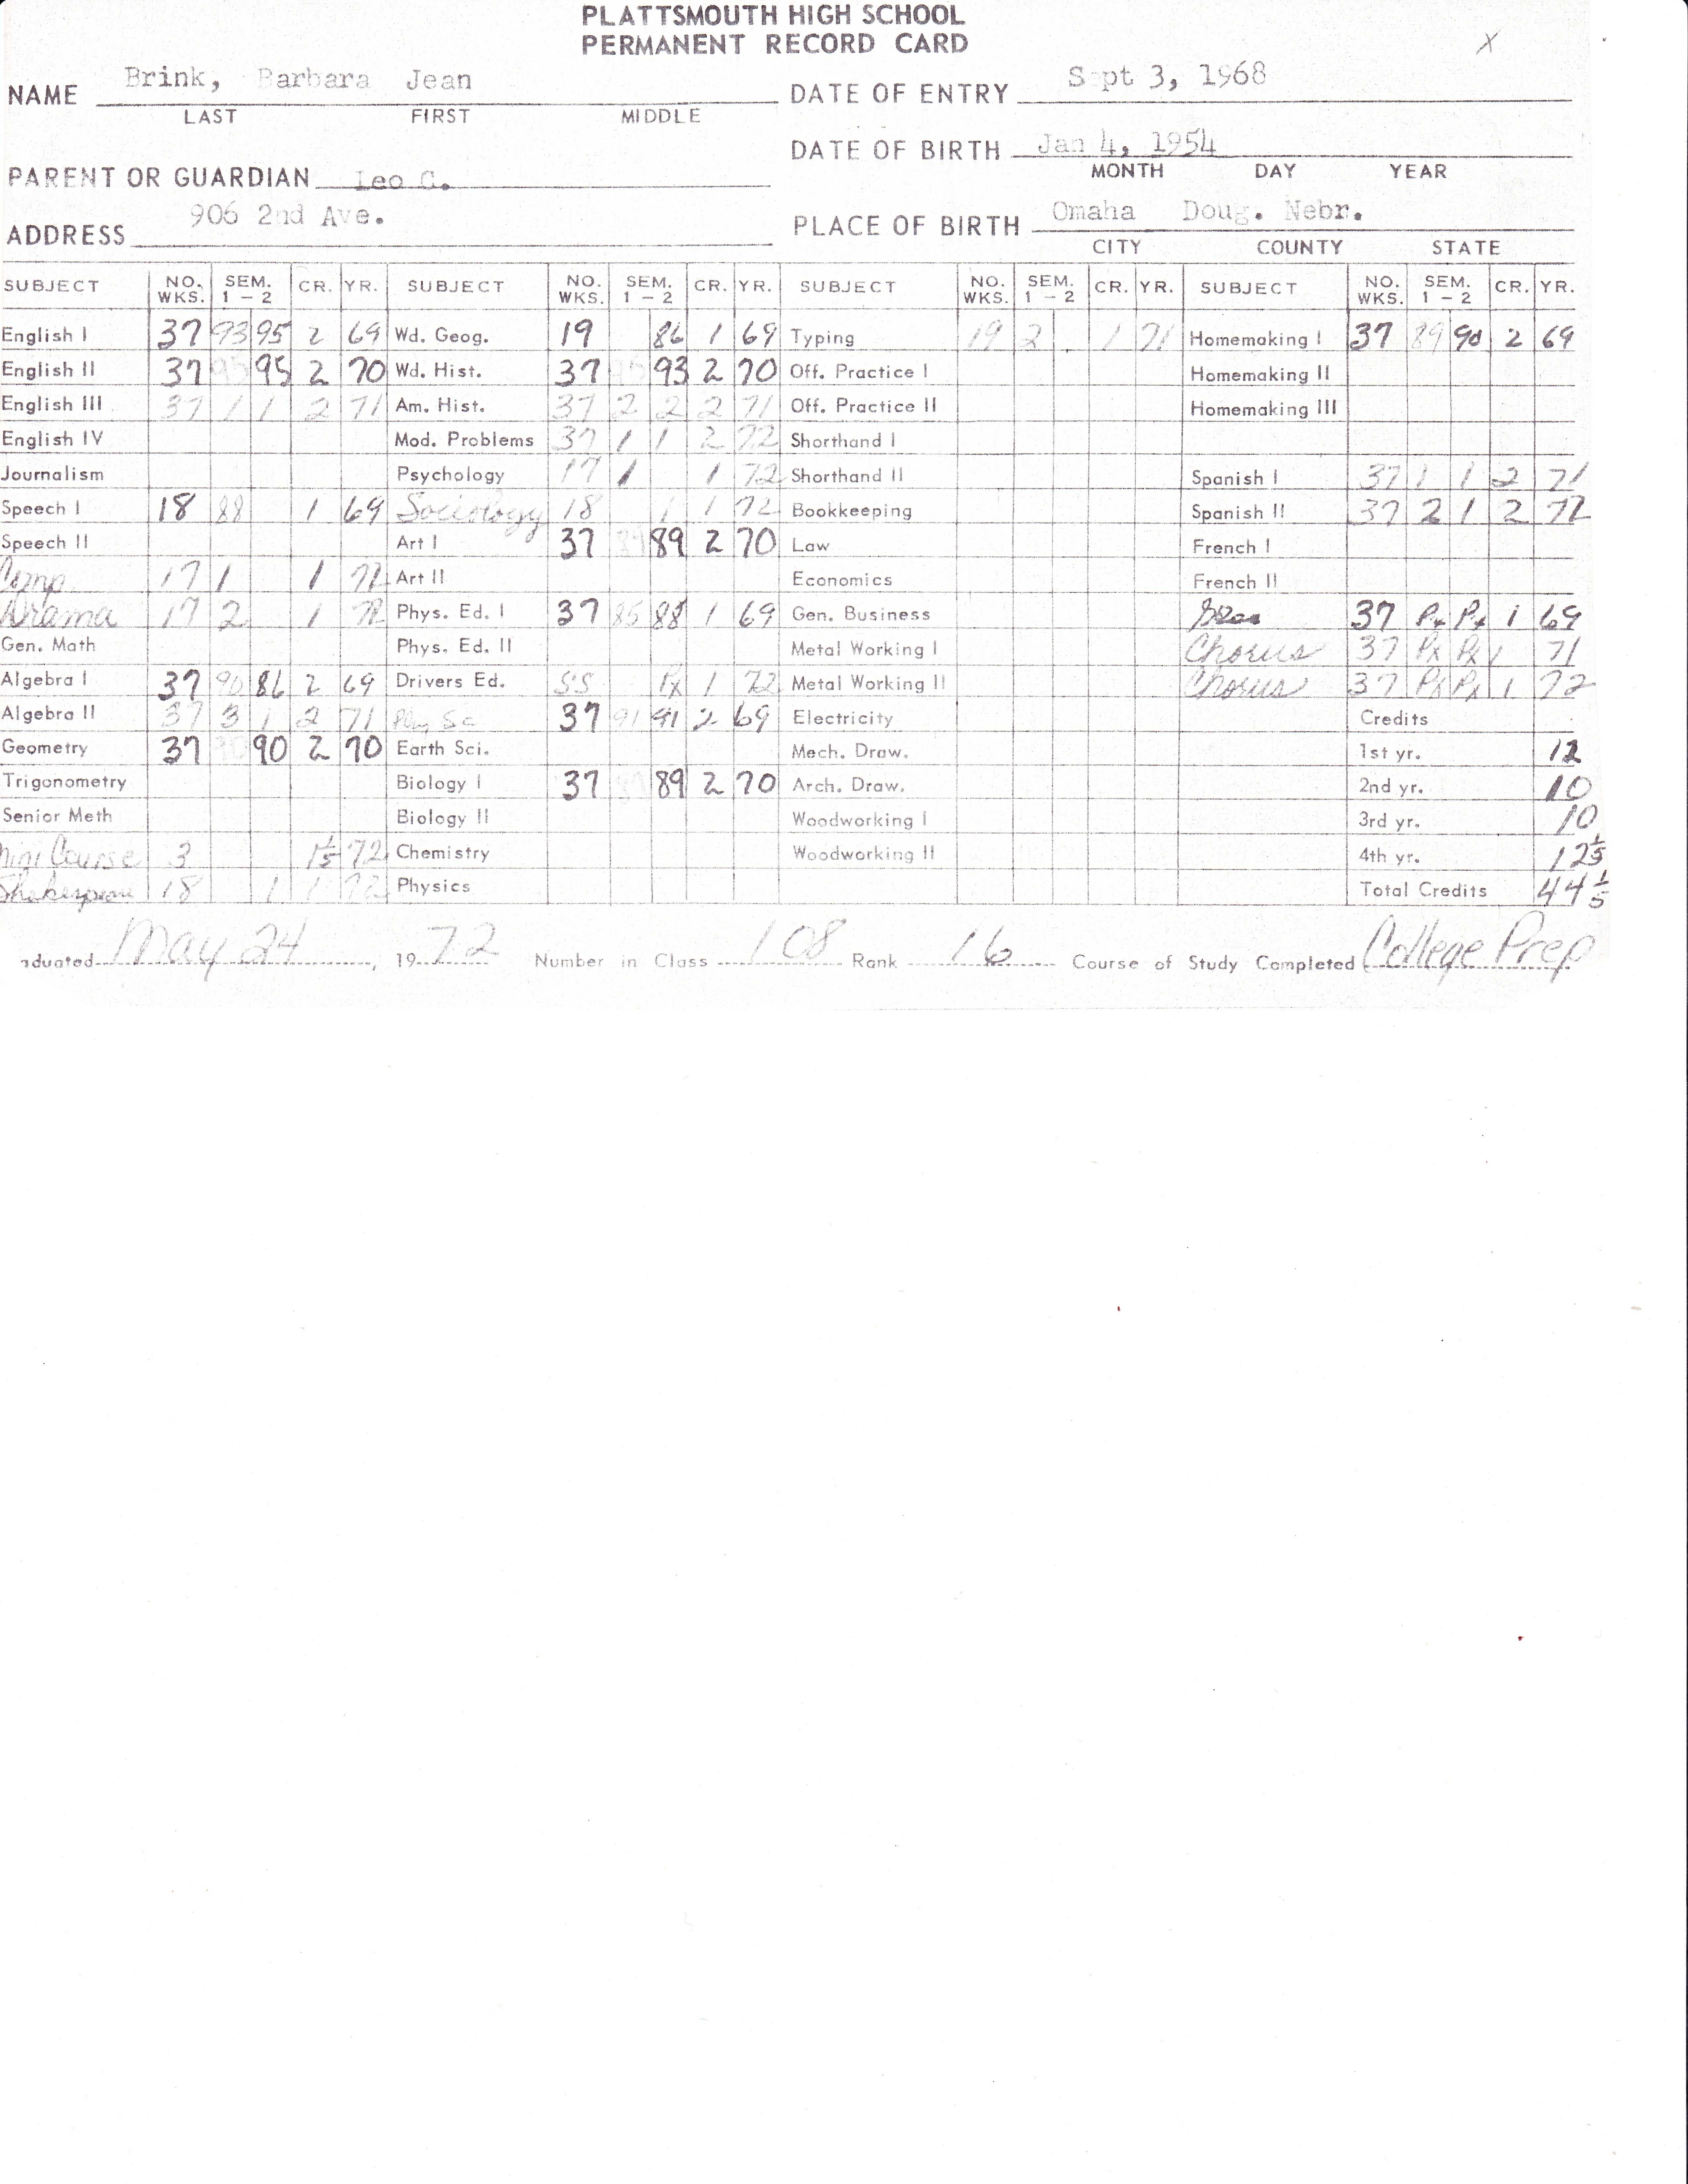 PLATTSMOUTH HIGH SCHOOL
PERMANENT RECORD CARD
X
NAME Brink, Barbara Jean DATE OF ENTRY Sept 3, 1968
LAST FIRST MIDDLE
DATE OF BIRTH Jan 4, 1954
MONTH DAY YEAR
PARENT OR GUARDIAN Leo C.
ADDRESS 906 2nd Ave. PLACE OF BIRTH Omaha Doug. Nebr.
CITY COUNTY STATE
SUBJECT NO. WKS. SEM. 1 – 2 CR. YR. SUBJECT NO. WKS. SEM. 1 – 2 CR. YR. SUBJECT NO. WKS. SEM. 1 – 2 CR. YR. SUBJECT NO. WKS. SEM. 1 – 2 CR. YR.
English I 37 93 95 2 69 Wd. Geog. 19 86 1 69 Typing 19 2 1 71 Homemaking I 37 89 90 2 69
English II 37 95 95 2 70 Wd. Hist. 37 93 2 70 Off. Practice I Homemaking II
English III 37 1 1 2 71 Am. Hist. 37 2 2 2 71 Off. Practice II Homemaking III
English IV Mod. Problems 37 1 1 2 72 Shorthand I
Journalism Psychology 17 1 1 72 Shorthand II Spanish I 37 1 1 2 71
Speech I 18 88 1 69 Sociology 18 1 1 72 Bookkeeping Spanish II 37 2 1 2 72
Speech II Art I 37 89 89 2 70 Law French I
Comp. 17 1 1 72 Art II Economics French II
Drama 17 2 1 72 Phys. Ed. I 37 85 88 1 69 Gen. Business 37 Px Px 1 69
Gen. Math Phys. Ed. II Metal Working I Chorus 37 Px Px 1 71
Algebra I 37 90 86 2 69 Drivers Ed. SS Px 1 72 Metal Working II Chorus 37 Px Px 1 72
Algebra II 37 3 1 2 71 Phy Sc 37 91 91 2 69 Electricity Credits
Geometry 37 90 90 2 70 Earth Sci. Mech. Draw. 1st yr. 12
Trigonometry Biology I 37 89 2 70 Arch. Draw. 2nd yr. 10
Senior Meth Biology II Woodworking I 3rd yr. 10
Mini Course 3 1/5 72 Chemistry Woodworking II 4th yr. 12 1/5
Shakespeare 18 1 1 72 Physics Total Credits 44 1/5
aduated May 24, 1972 Number in Class 108 Rank 16 Course of Study Completed College Prep